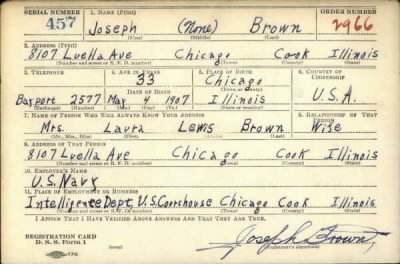 SERIAL NUMBER 1. NAME (Print) ORDER NUMBER
457 Joseph (None) Brown 2966
(First) (Middle) (Last)
2. ADDRESS (Print)
8107 Luella Ave Chicago Cook Illinois
(Number and street or R. F. D. number) (Town) (County) (State)
3. TELEPHONE 4. AGE IN YEARS 5. PLACE OF BIRTH 6. COUNTRY OF CITIZENSHIP
33 Chicago
DATE OF BIRTH (Town or county)
Bayport 2577 May 4 1907 Illinois U.S.A.
(Exchange) (Number) (Mo.) (Day) (Yr.) (State or country)
7. NAME OF PERSON WHO WILL ALWAYS KNOW YOUR ADDRESS 8. RELATIONSHIP OF THAT PERSON
Mrs. Laura Lewis Brown Wife
(Mr., Mrs., Miss) (First) (Middle) (Last)
9. ADDRESS OF THAT PERSON
8107 Luella Ave Chicago Cook Illinois
(Number and street or R. F. D. number) (Town) (County) (State)
10. EMPLOYER'S NAME
U.S. Navy
11. PLACE OF EMPLOYMENT OR BUSINESS
Intelligence Dept. U.S. Courthouse Chicago Cook Illinois
(Number and street or R. F. D. number) (Town) (County) (State)
I AFFIRM THAT I HAVE VERIFIED ABOVE ANSWERS AND THAT THEY ARE TRUE.
REGISTRATION CARD
D. S. S. Form 1 Joseph Brown
(Registrant's signature)